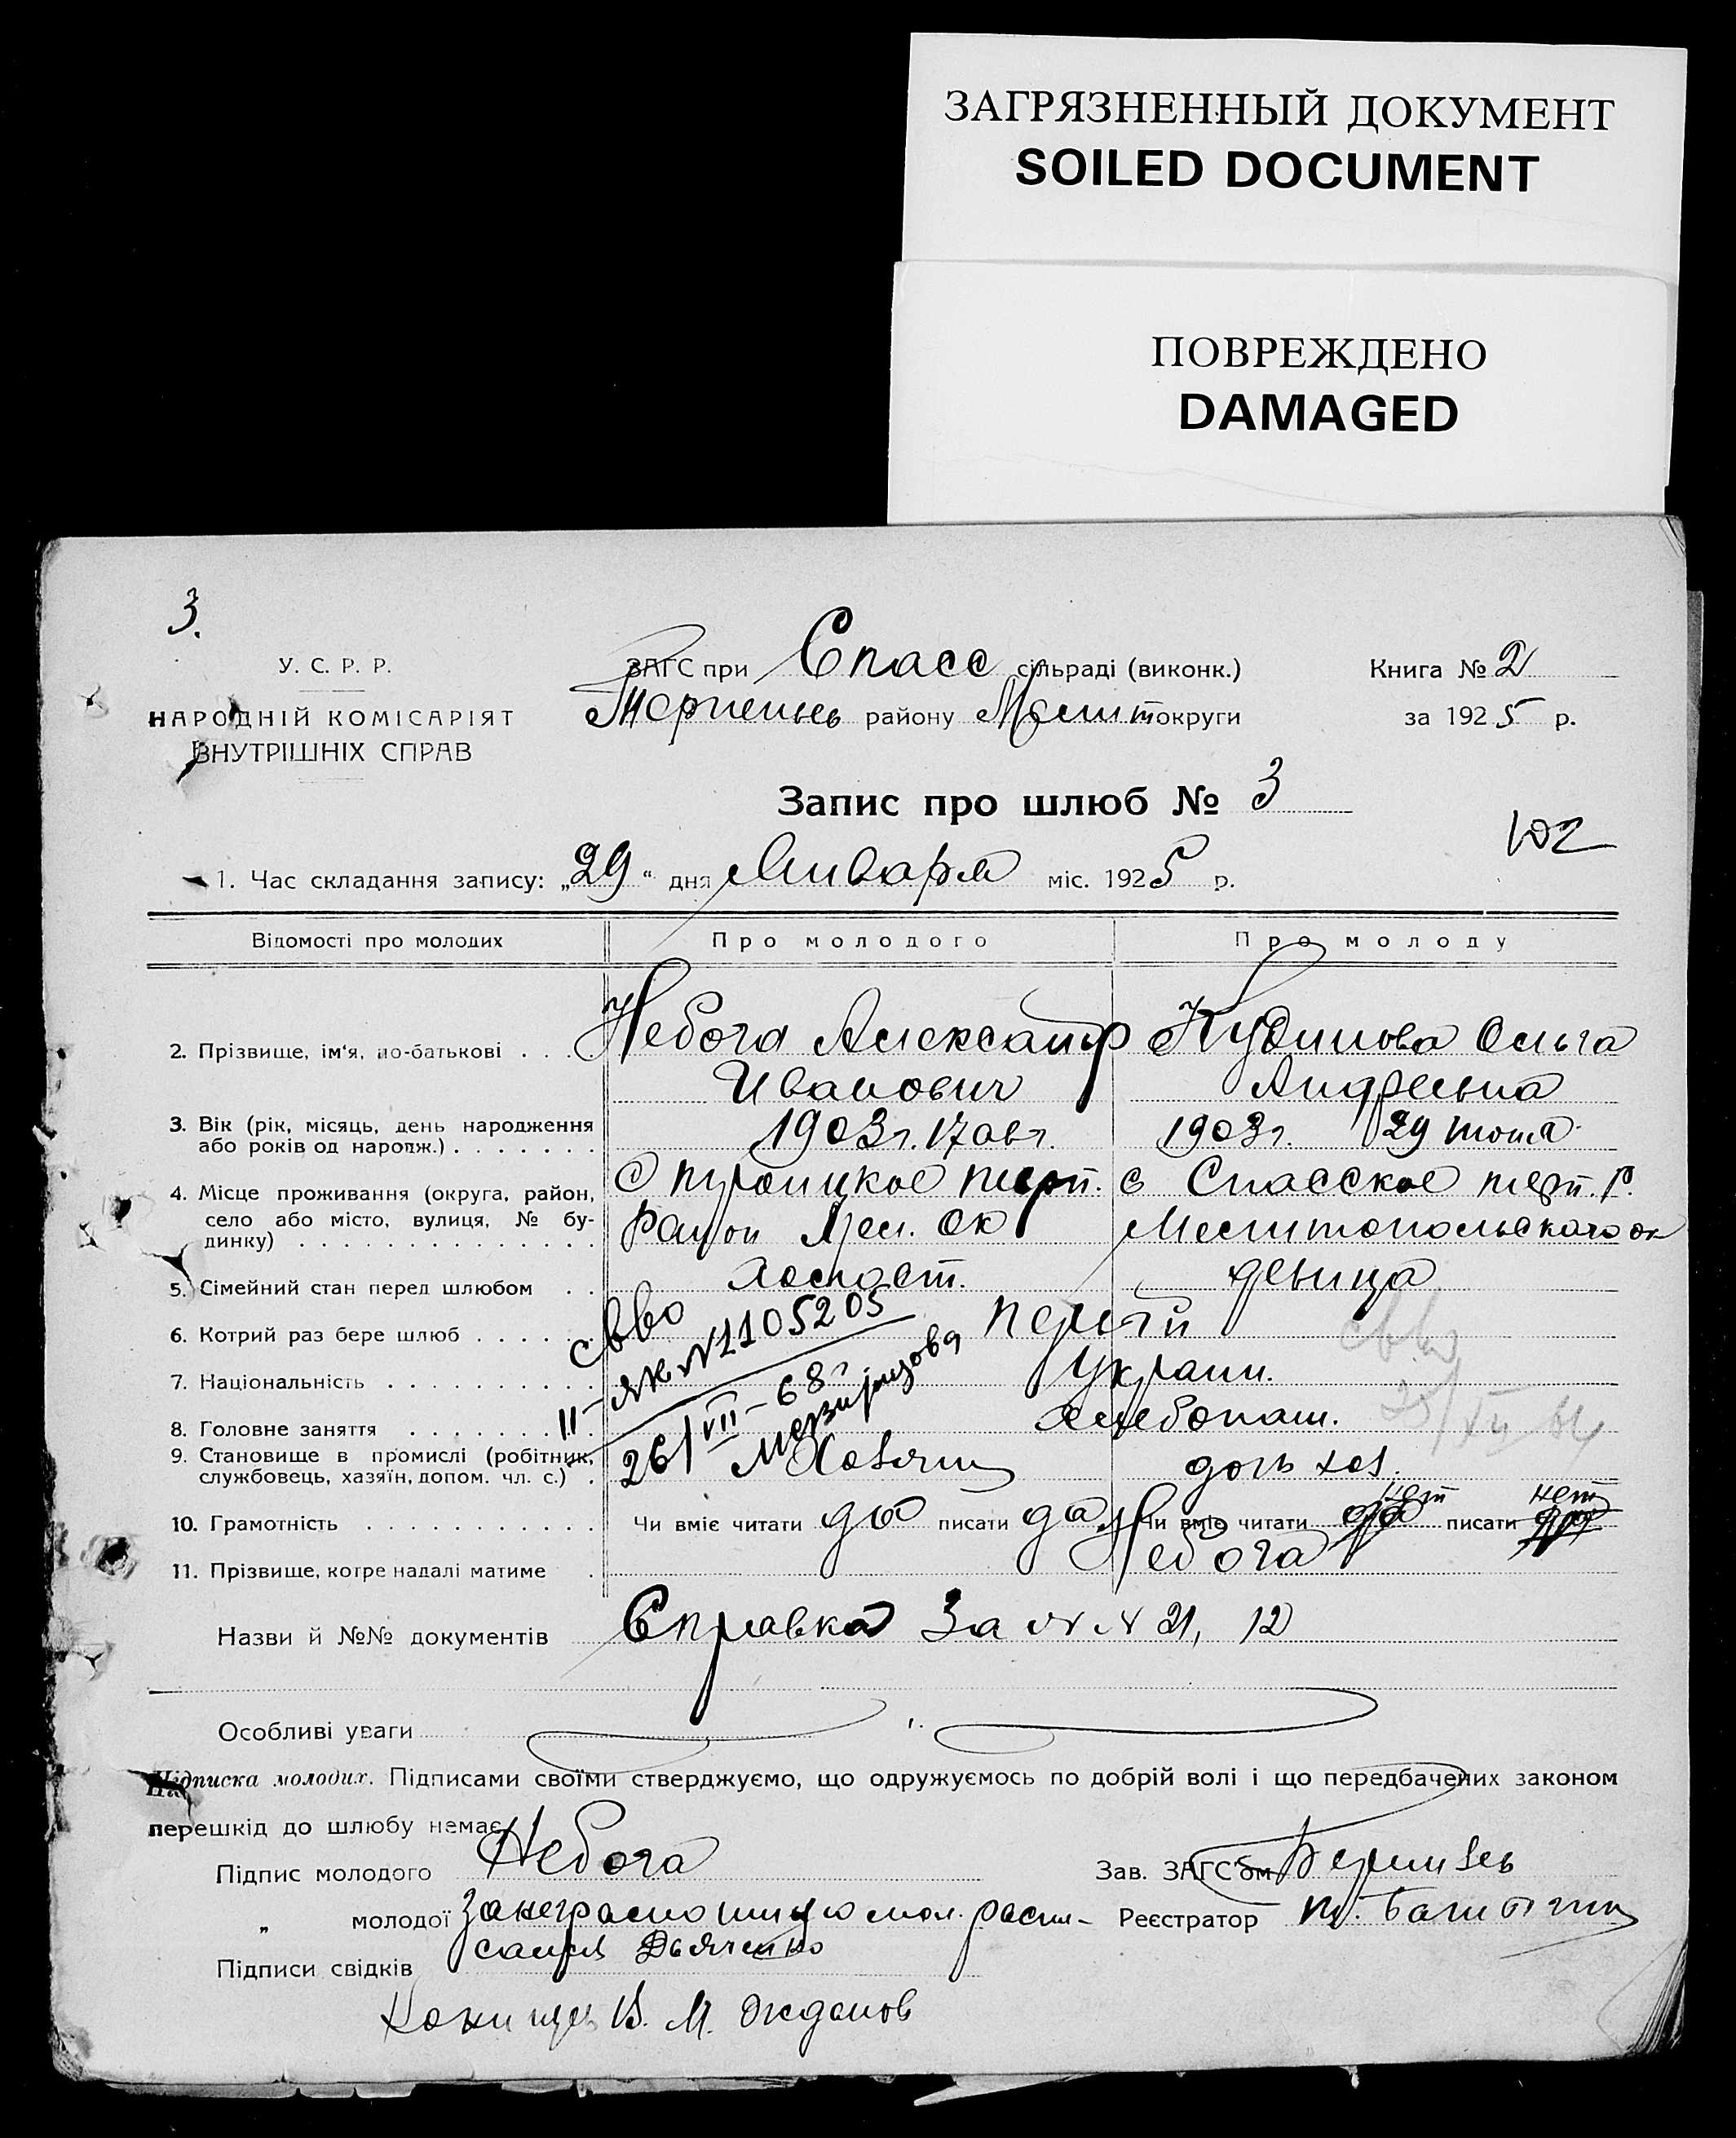 ЗАГРЯЗНЕННЫЙ ДОКУМЕНТ
SOILED DOCUMENT
ПОВРЕЖДЕНО
DAMAGED
3.
У. С. Р. Р.
НАРОДНІЙ КОМІСАРІЯТ
ВНУТРІШНІХ СПРАВ
ЗАГС при Спасс сільраді (виконк.)
району Мелит округи
Книга № 2
за 1925 р.
Запис про шлюб № 3
102
1. Час складання запису: „29“ дня Января міс. 1925 р.
Відомості про молодих Про молодого Про молоду
2. Прізвище, ім'я, по-батькові . . . Небога Александр Кудинова Ольга
Иванович Андреевна
3. Вік (рік, місяць, день народження
або років од нарождж.) . . . . . . . 1903 г. 17 авг. 1903 г. 29 июля
4. Місце проживання (округа, район, с Троицкое терп. с Спасское терп. р.
село або місто, вулиця, № бу- район Мел. ок Мелитопольского ок
динку) . . . . . . . . . . . . . .
5. Сімейний стан перед шлюбом . . холост. девица
6. Котрий раз бере шлюб . . . . . . перв
7. Національність . . . . . . . . . . Украин.
8. Головне заняття . . . . . . . . . хлебопаш.
9. Становище в промислі (робітник,
службовець, хазяїн, допом. чл. с.) . Хозяин дочь хоз.
св-во
II-ЯЖ № 1105205
26/VII-68г
св-во
10. Грамотність . . . . . . . . . . . Чи вміє читати да писати да Чи вміє читати нет писати нет
11. Прізвище, котре надалі матиме . Небога
Назви й №№ документів Справка за № № 21, 12
Особливі уваги
Підписка молодих. Підписами своїми стверджуємо, що одружуємось по добрій волі і що передбачених законом
перешкід до шлюбу немає.
Підпис молодого Небога Зав. ЗАГС'ом
„ молодої за неграмотную распи- Реєстратор
сался Дьяченко
Підписи свідків
В. М. Жданов